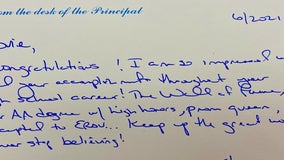 om the desk of the Principal
6/2021
ongratulations! I am so impressed
your accomplishments throughout your
school career! The Wall of Fame,
AA degree w/ high honors, prom queen,
to EROU... Keep up the great
stop believing!